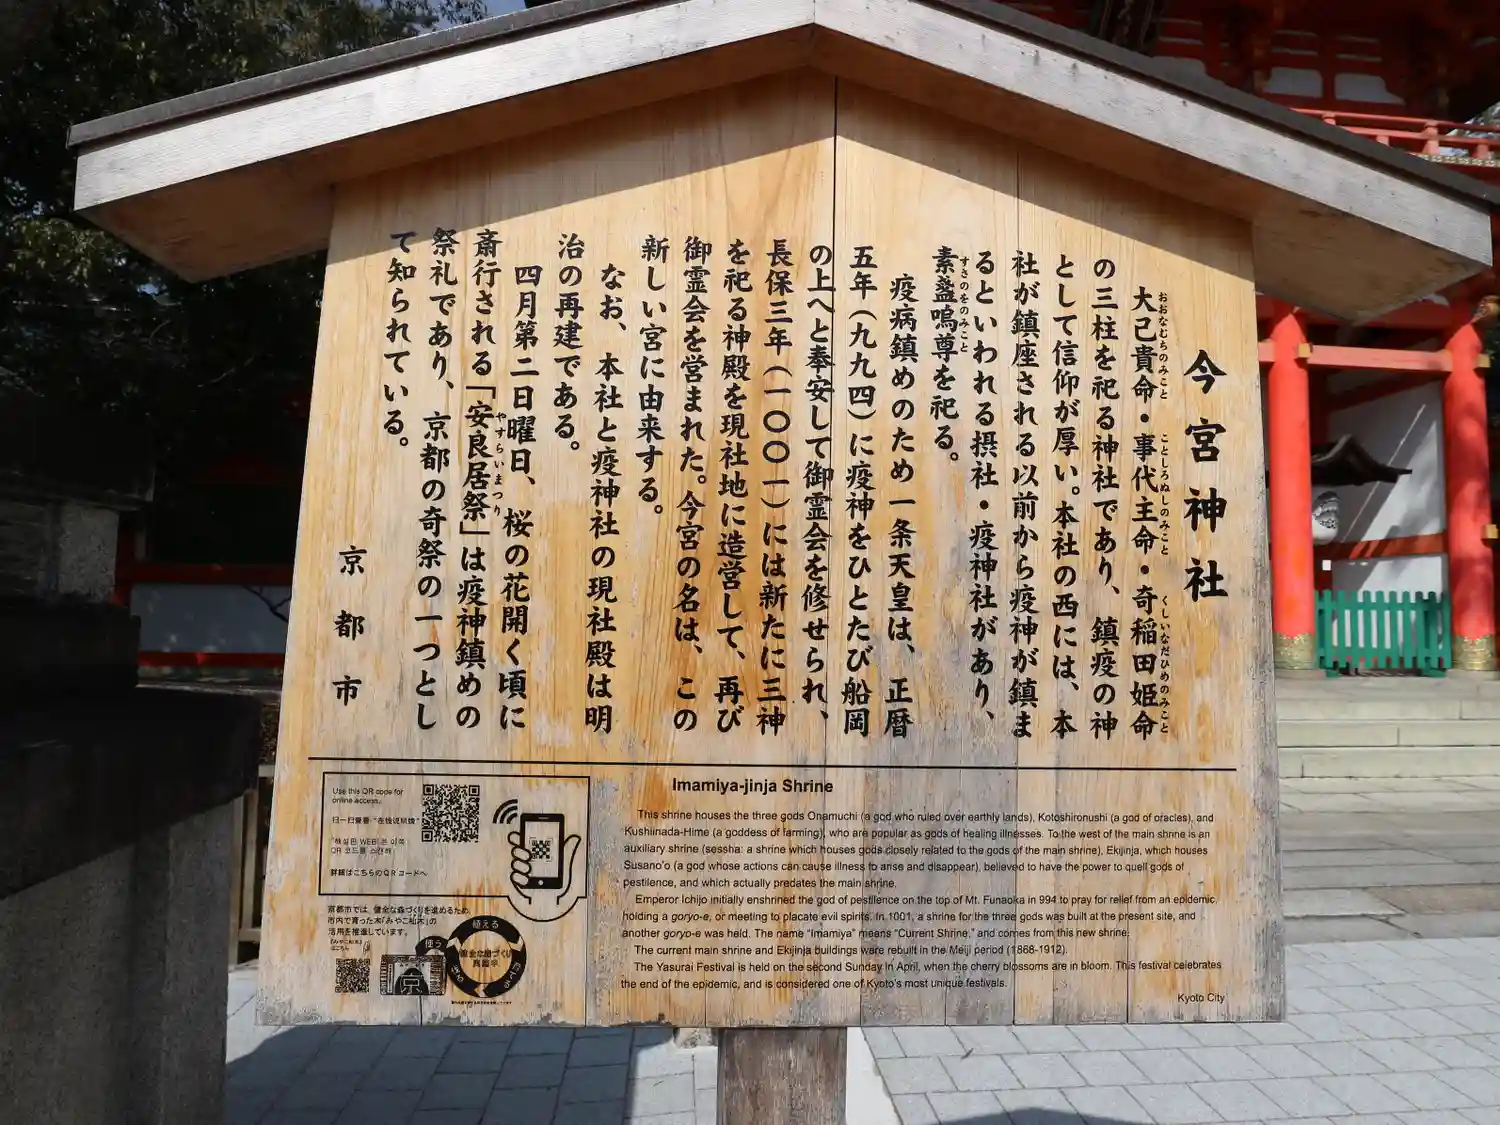 今宮神社
大己貴命・事代主命・奇稲田姫命
おおなむちのみこと ことしろぬしのみこと くしいなだひめのみこと
の三柱を祀る神社であり、鎮疫の神
として信仰が厚い。本社の西には、本
社が鎮座される以前から疫神が鎮ま
るといわれる摂社・疫神社があり、
素盞嗚尊を祀る。
すさのをのみこと
疫病鎮めのため一条天皇は、正暦
五年(九九四)に疫神をひとたび船岡
の上へと奉安して御霊会を修せられ、
長保三年(一〇〇一)には新たに三神
を祀る神殿を現社地に造営して、再び
御霊会を営まれた。今宮の名は、この
新しい宮に由来する。
なお、本社と疫神社の現社殿は明
治の再建である。
四月第二日曜日、桜の花開く頃に
斎行される「安良居祭」は疫神鎮めの
やすらいまつり
祭礼であり、京都の奇祭の一つとし
て知られている。
京都市
Use this QR code for
online access.
扫一扫查看“在线说明牌”
"해설판 WEB"은 이쪽
QR 코드를 스캔해
詳細はこちらのQRコードへ
京都市では、健全な森づくりを進めるため、
市内で育った木「みやこ杣木」の
活用を推進しています。
植える
使う
京
Imamiya-jinja Shrine
This shrine houses the three gods Onamuchi (a god who ruled over earthly lands), Kotoshironushi (a god of oracles), and
Kushiinada-Hime (a goddess of farming), who are popular as gods of healing illnesses. To the west of the main shrine is an
auxiliary shrine (sessha: a shrine which houses gods closely related to the gods of the main shrine), Ekijinja, which houses
Susano'o (a god whose actions can cause illness to arise and disappear), believed to have the power to quell gods of
pestilence, and which actually predates the main shrine.
Emperor Ichijo initially enshrined the god of pestilence on the top of Mt. Funaoka in 994 to pray for relief from an epidemic,
holding a goryo-e, or meeting to placate evil spirits. In 1001, a shrine for the three gods was built at the present site, and
another goryo-e was held. The name "Imamiya" means "Current Shrine," and comes from this new shrine.
The current main shrine and Ekijinja buildings were rebuilt in the Meiji period (1868-1912).
The Yasurai Festival is held on the second Sunday in April, when the cherry blossoms are in bloom. This festival celebrates
the end of the epidemic, and is considered one of Kyoto's most unique festivals.
Kyoto City